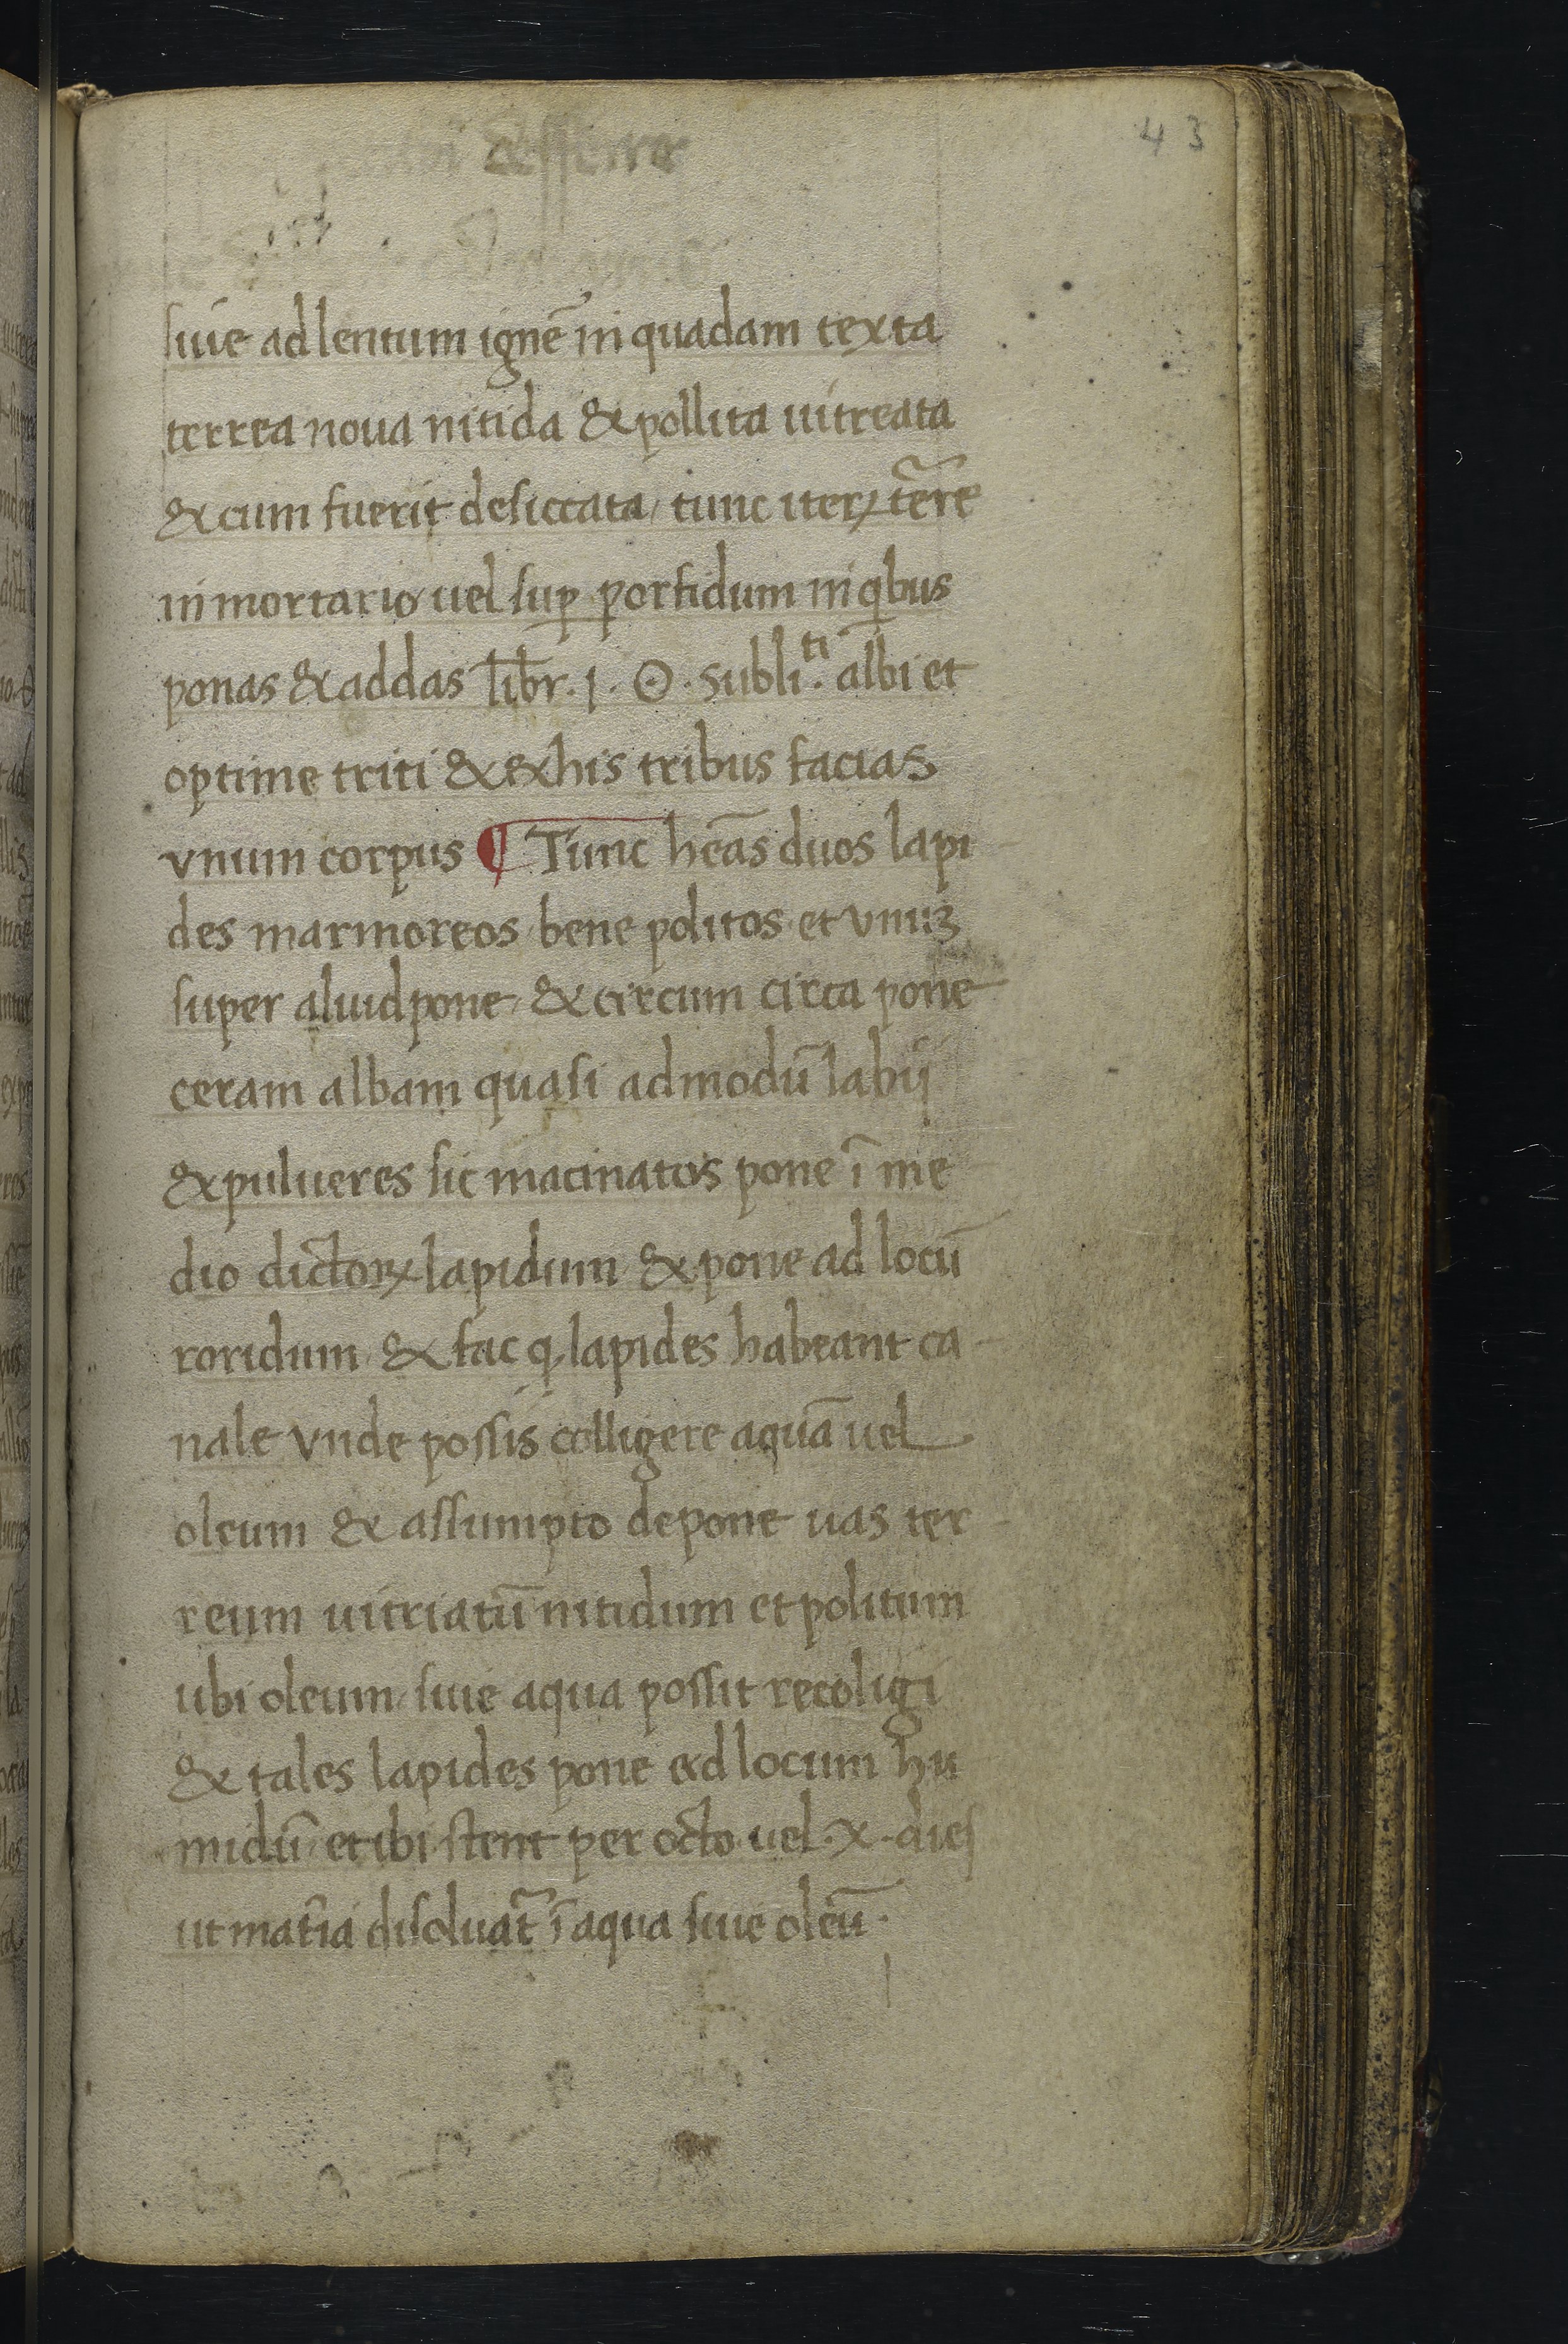 43
siue ad lentum ignē in quadam texta
terrea noua nitida & pollita uitreata
& cum fuerit desiccata, tunc iterꝝ tēre
in mortario uel suꝑ porfidum in qibus
ponas & addas libr. j. ☉. Subliᵗⁱ. albi et
optime triti & ex his tribus facias
vnum corpus ¶ Tunc hēas duos lapi
des marmoreos bene politos et vnuꝫ
super aluid pone, & circum circa pone
ceram albam quasi ad modū labij
& pulueres sic macinatos pone ī me
dio dictoꝝ lapidum & pone ad locū
roridum & fac ꝙ lapides habeant ca-
nale vnde possis colligere aquā uel
oleum & assumpto depone uas ter-
reum uitriatū nitidum et politum
ubi oleum, siue aqua possit recoligi
& tales lapides pone ad locum hu
midū et ibi stent per octo uel .x. dies
ut mat̄ia disoluat̄ ī aqua siue oleū.